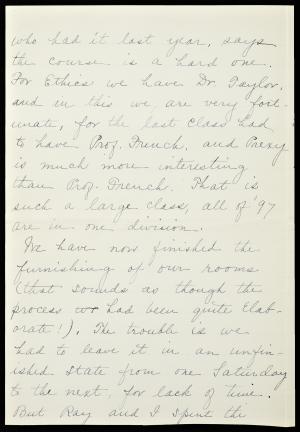 who had it last year, says
the course is a hard one.
For Ethics we have Dr. Taylor,
and in this we are very fort-
unate, for the last class had
to have Prof. French, and Prexy
is much more interesting
than Prof. French. That is
such a large class, all of '97
are in one division.
We have now finished the
furnishing of our rooms
(that sounds as though the
process had been quite elab-
orate!). The trouble is we
had to leave it in an unfin-
ished state from one Saturday
to the next, for lack of time.
But Ray and I spent the